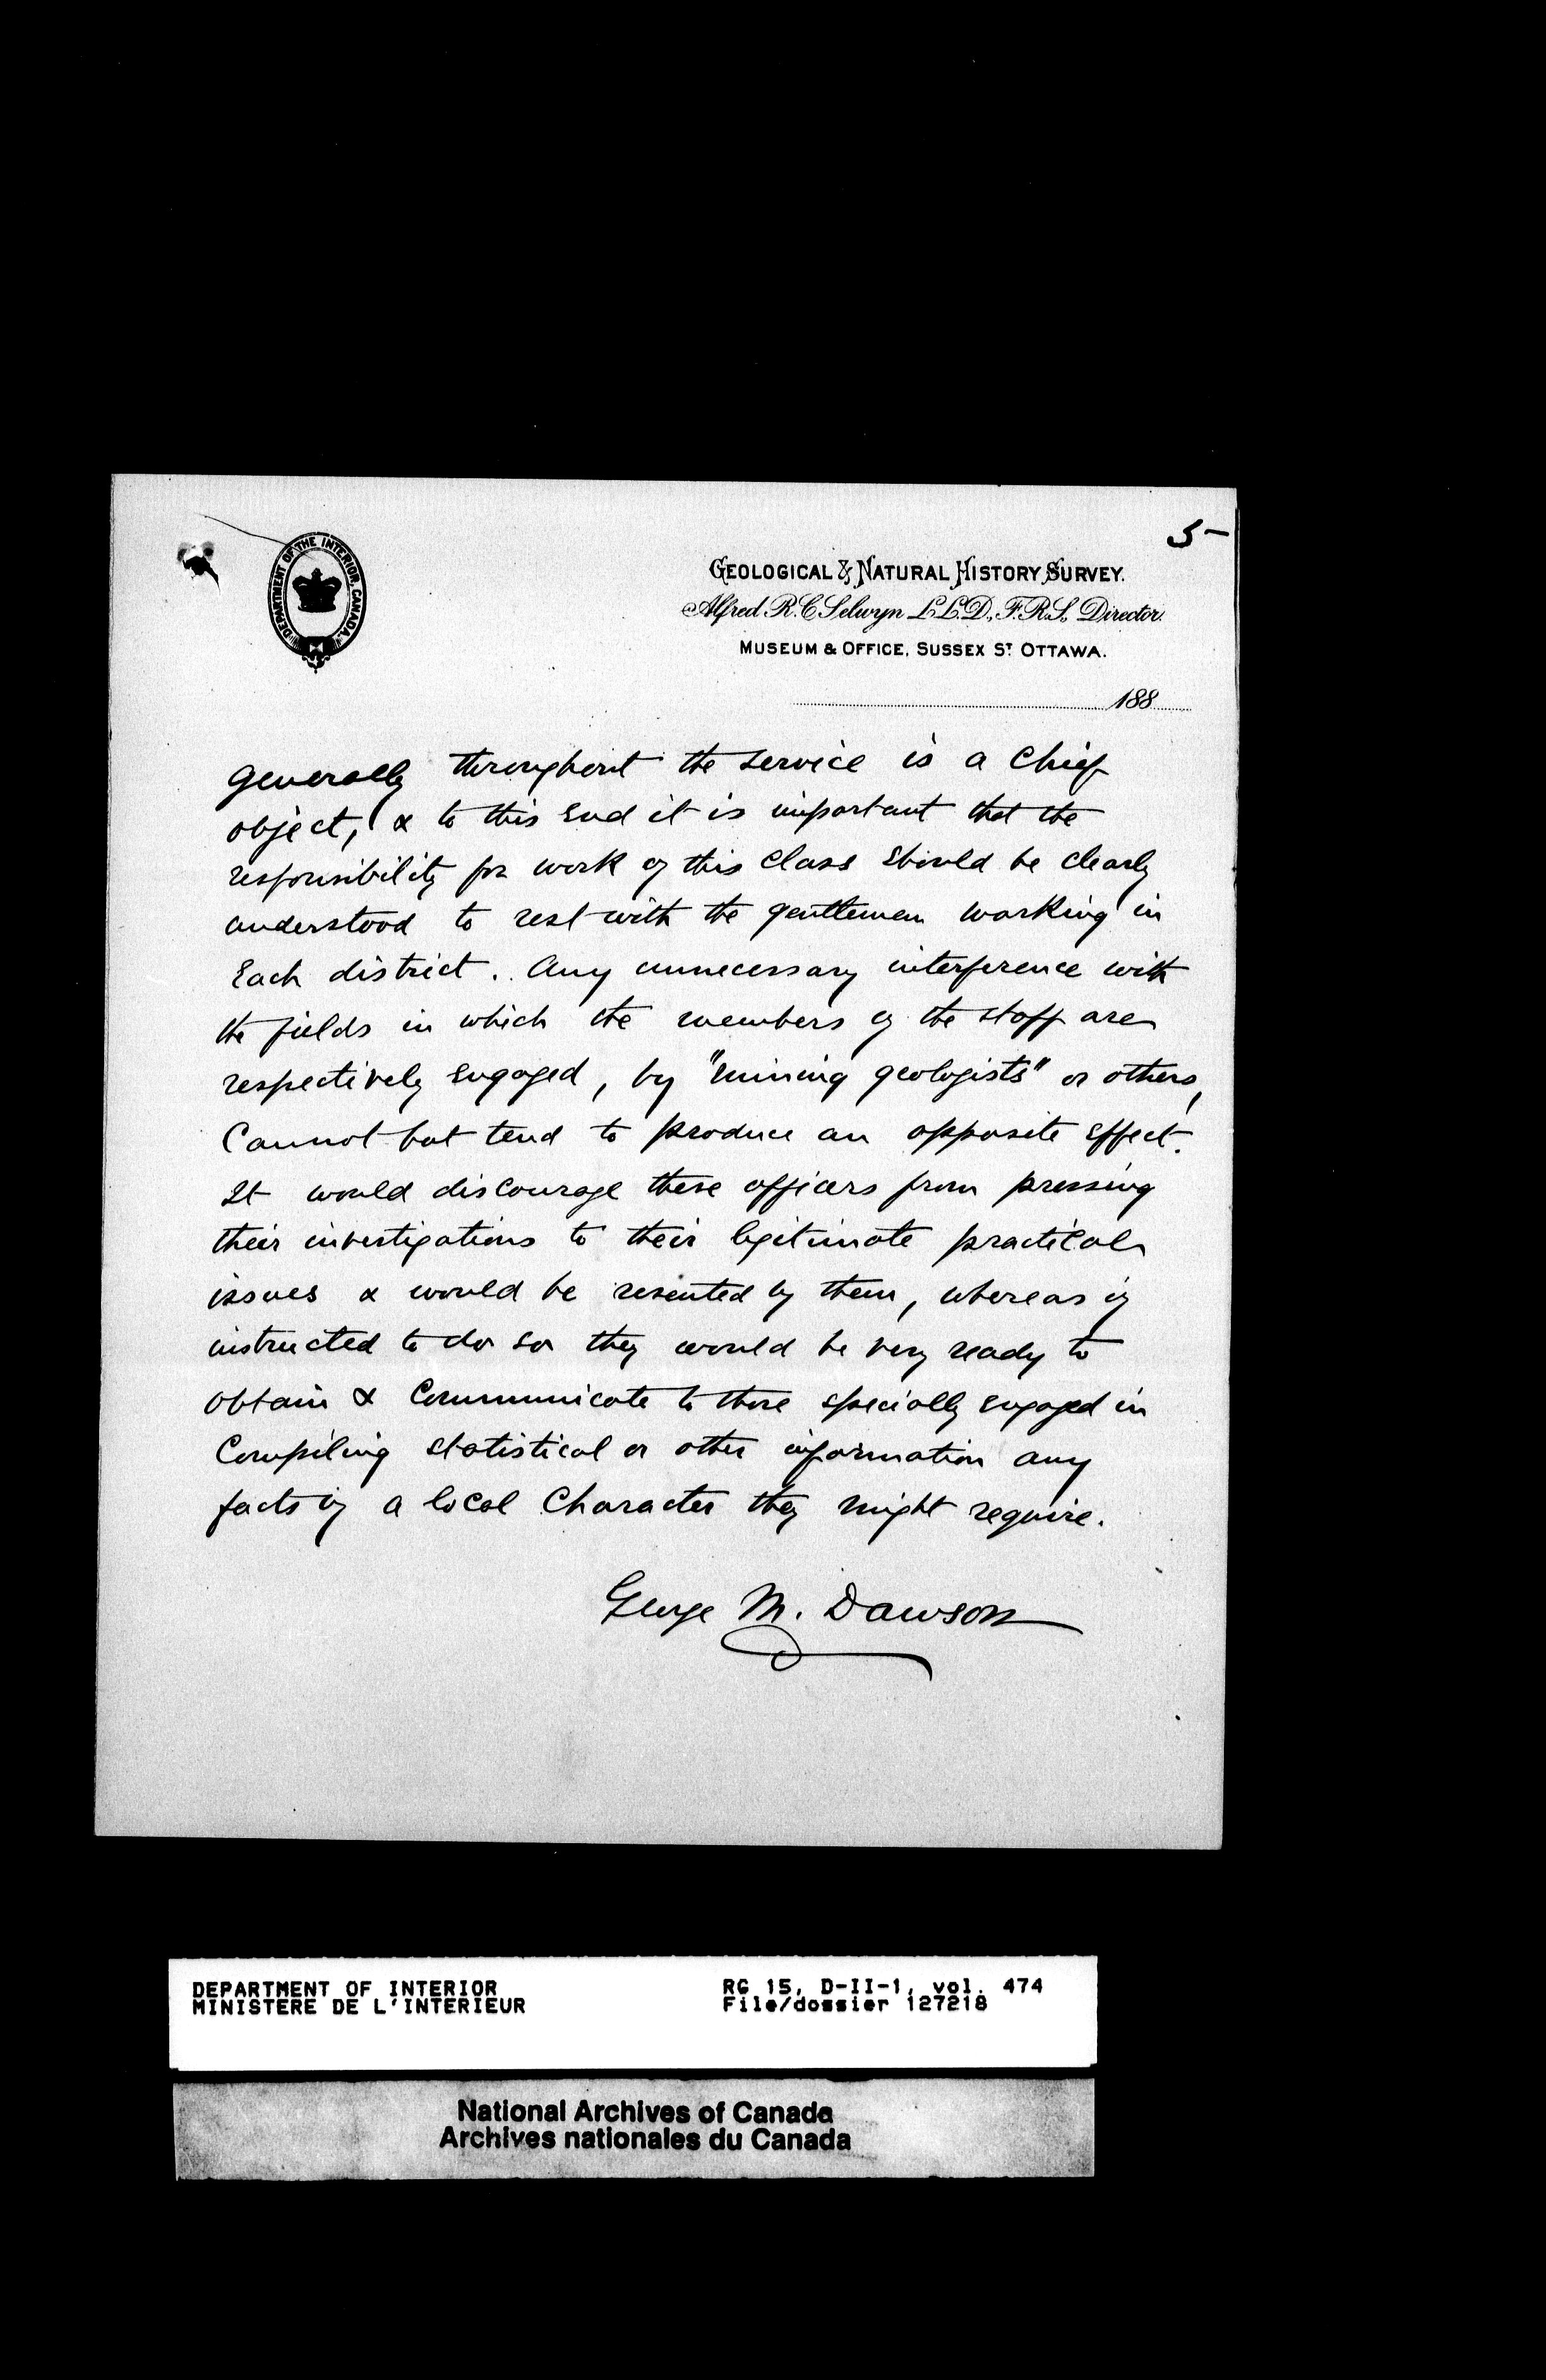 5-
DEPARTMENT OF THE INTERIOR, CANADA.
GEOLOGICAL & NATURAL HISTORY SURVEY.
Alfred R. C. Selwyn L.L.D., F.R.S., Director.
MUSEUM & OFFICE, SUSSEX ST OTTAWA.
188
generally throughout the service is a chief
object, & to this end it is important that the
responsibility for work of this class should be clearly
understood to rest with the gentlemen working in
each district. Any unnecessary interference with
the fields in which the members of the staff are
respectively engaged, by "mining geologists" or others,
Cannot but tend to produce an opposite effect.
It would discourage these officers from pressing
their investigations to their legitimate practical
issues & would be resented by them, whereas if
instructed to do so they would be very ready to
obtain & Communicate to those specially engaged in
Compiling statistical or other information any
facts of a local Character they might require.
George M. Dawson
DEPARTMENT OF INTERIOR RG 15, D-II-1, vol. 474
MINISTERE DE L'INTERIEUR File/dossier 127218
National Archives of Canada
Archives nationales du Canada